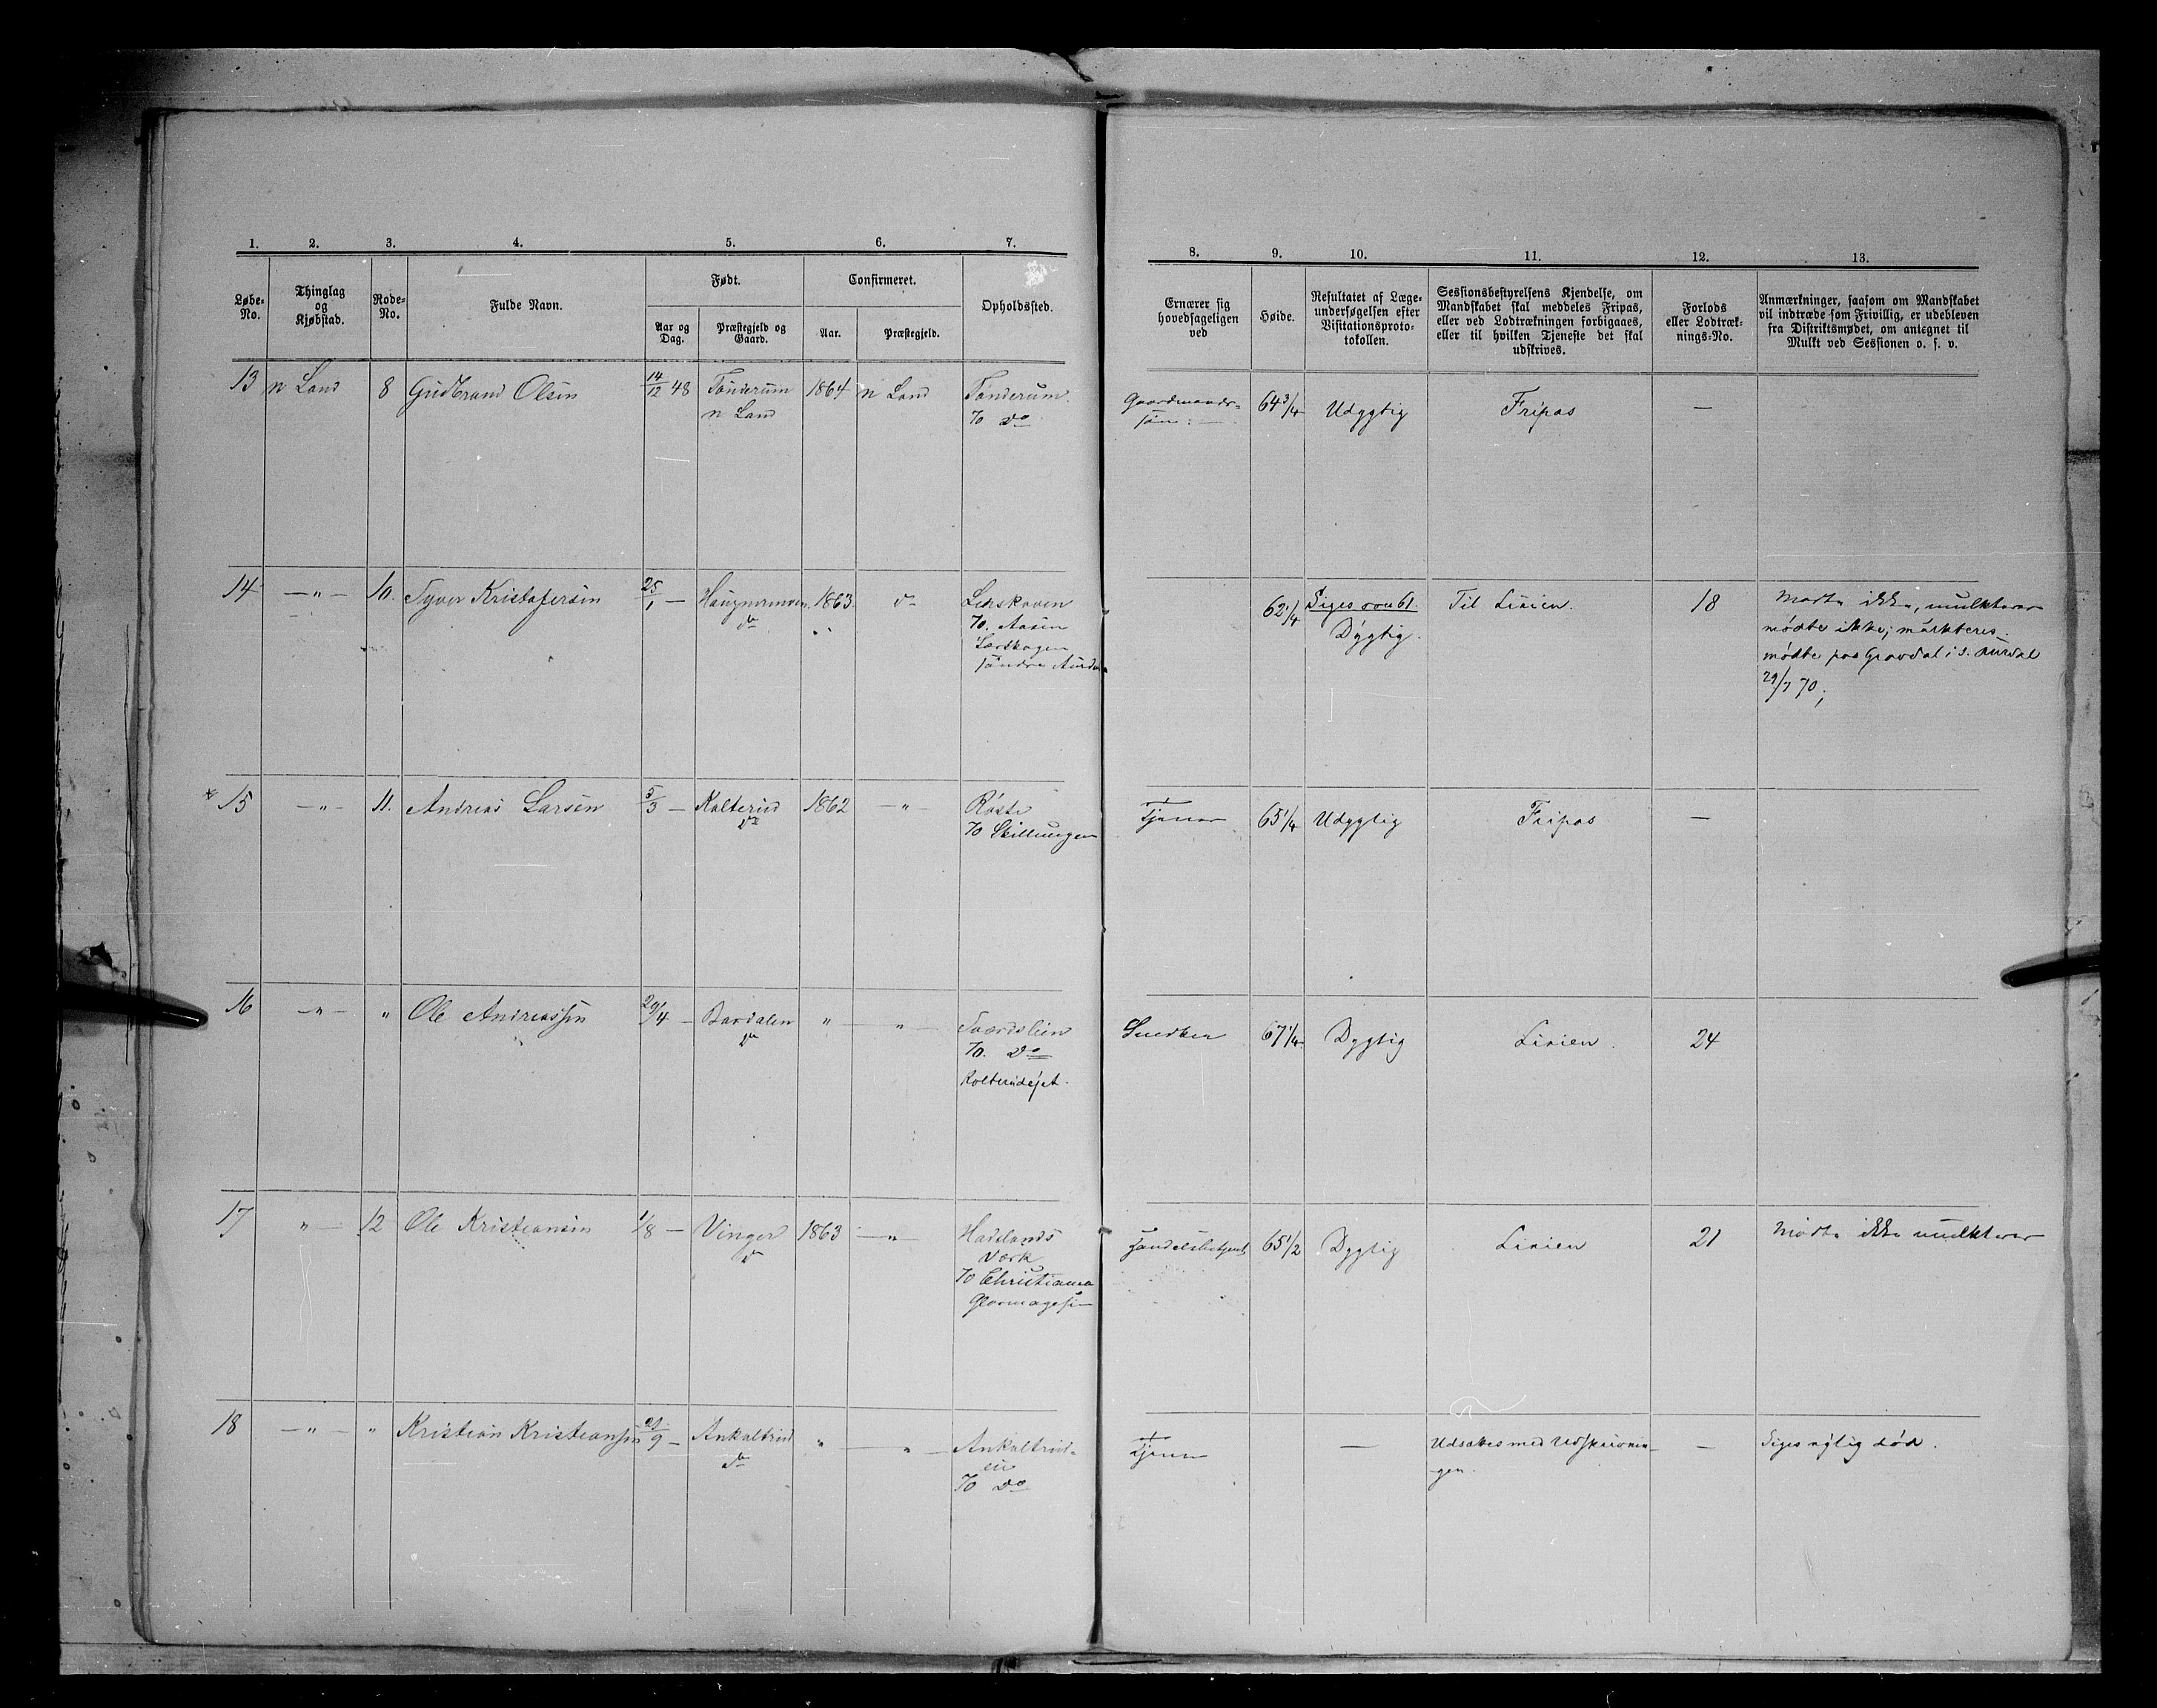 1. 2. 3. 4. 5. 6. 7.
Løbe-No. Thinglag og Kjøbstad. Rode-No. Fulde Navn. Født. Confirmeret. Opholdssted.
Aar og Dag. Præstegjeld og Gaard. Aar. Præstegjeld.
13 n Land 8 Gudbrand Olsen 14/12 48 Tønderum 1864 n Land Tønderum
n Land 70 do
14 — " — 10. Syver Kristofersen 25/1 — 1863. do
do 70. Aasen
søndre Aurdal
15 — " — 11. Andreas Larsen 5/3 — Kolterud 1862 — " — Røste
do 70 Skillungen
16 — " — " Ole Andreassen 29/4 — Bardalen " — " —
do 70. do
Kolterudejet.
17 " — 12 Ole Kristiansen 1/8 — Vinger 1863 — " — Hadelands
do Værk
70 Christiania
Glasmagasin
18 — " — " Kristian Kristiansen 21/9 — Ankaltrud " " — Ankaltrud-
do eie
70 do
8. 9. 10. 11. 12. 13.
Ernærer sig hovedsageligen ved
Høide.
Resultatet af Læge-undersøgelsen efter Visitationsproto-tokollen.
Sessionsbestyrelsens Kjendelse, om Mandskabet skal meddeles Fripas, eller ved Lodtrækningen forbigaaes, eller til hvilken Tjeneste det skal udskrives.
Forlods eller Lodtræk-nings-No.
Anmærkninger, saasom om Mandskabet vil indtræde som Frivillig, er udebleven fra Distriktsmødet, om antegnet til Mulkt ved Sessionen o. s. v.
Gaardmands- 64 3/4 Udygtig Fripas —
søn: —
62 1/4 Siges 61. Til Linien. 18 Mødte ikke, mulkteres
Dygtig. mødte ikke; mulkteres.
mødte paa Gravdal i S. Aurdal
29/7 70;
Tjener 65 1/4 Udygtig Fripas —
Snedker 67 1/4 Dygtig Linien. 24
Handelsbetjent 65 1/2 Dygtig Linien 21 Mødte ikke mulkteres
Tjener — Udsættes med Udskrivnin- — Siges nylig død.
-gen.